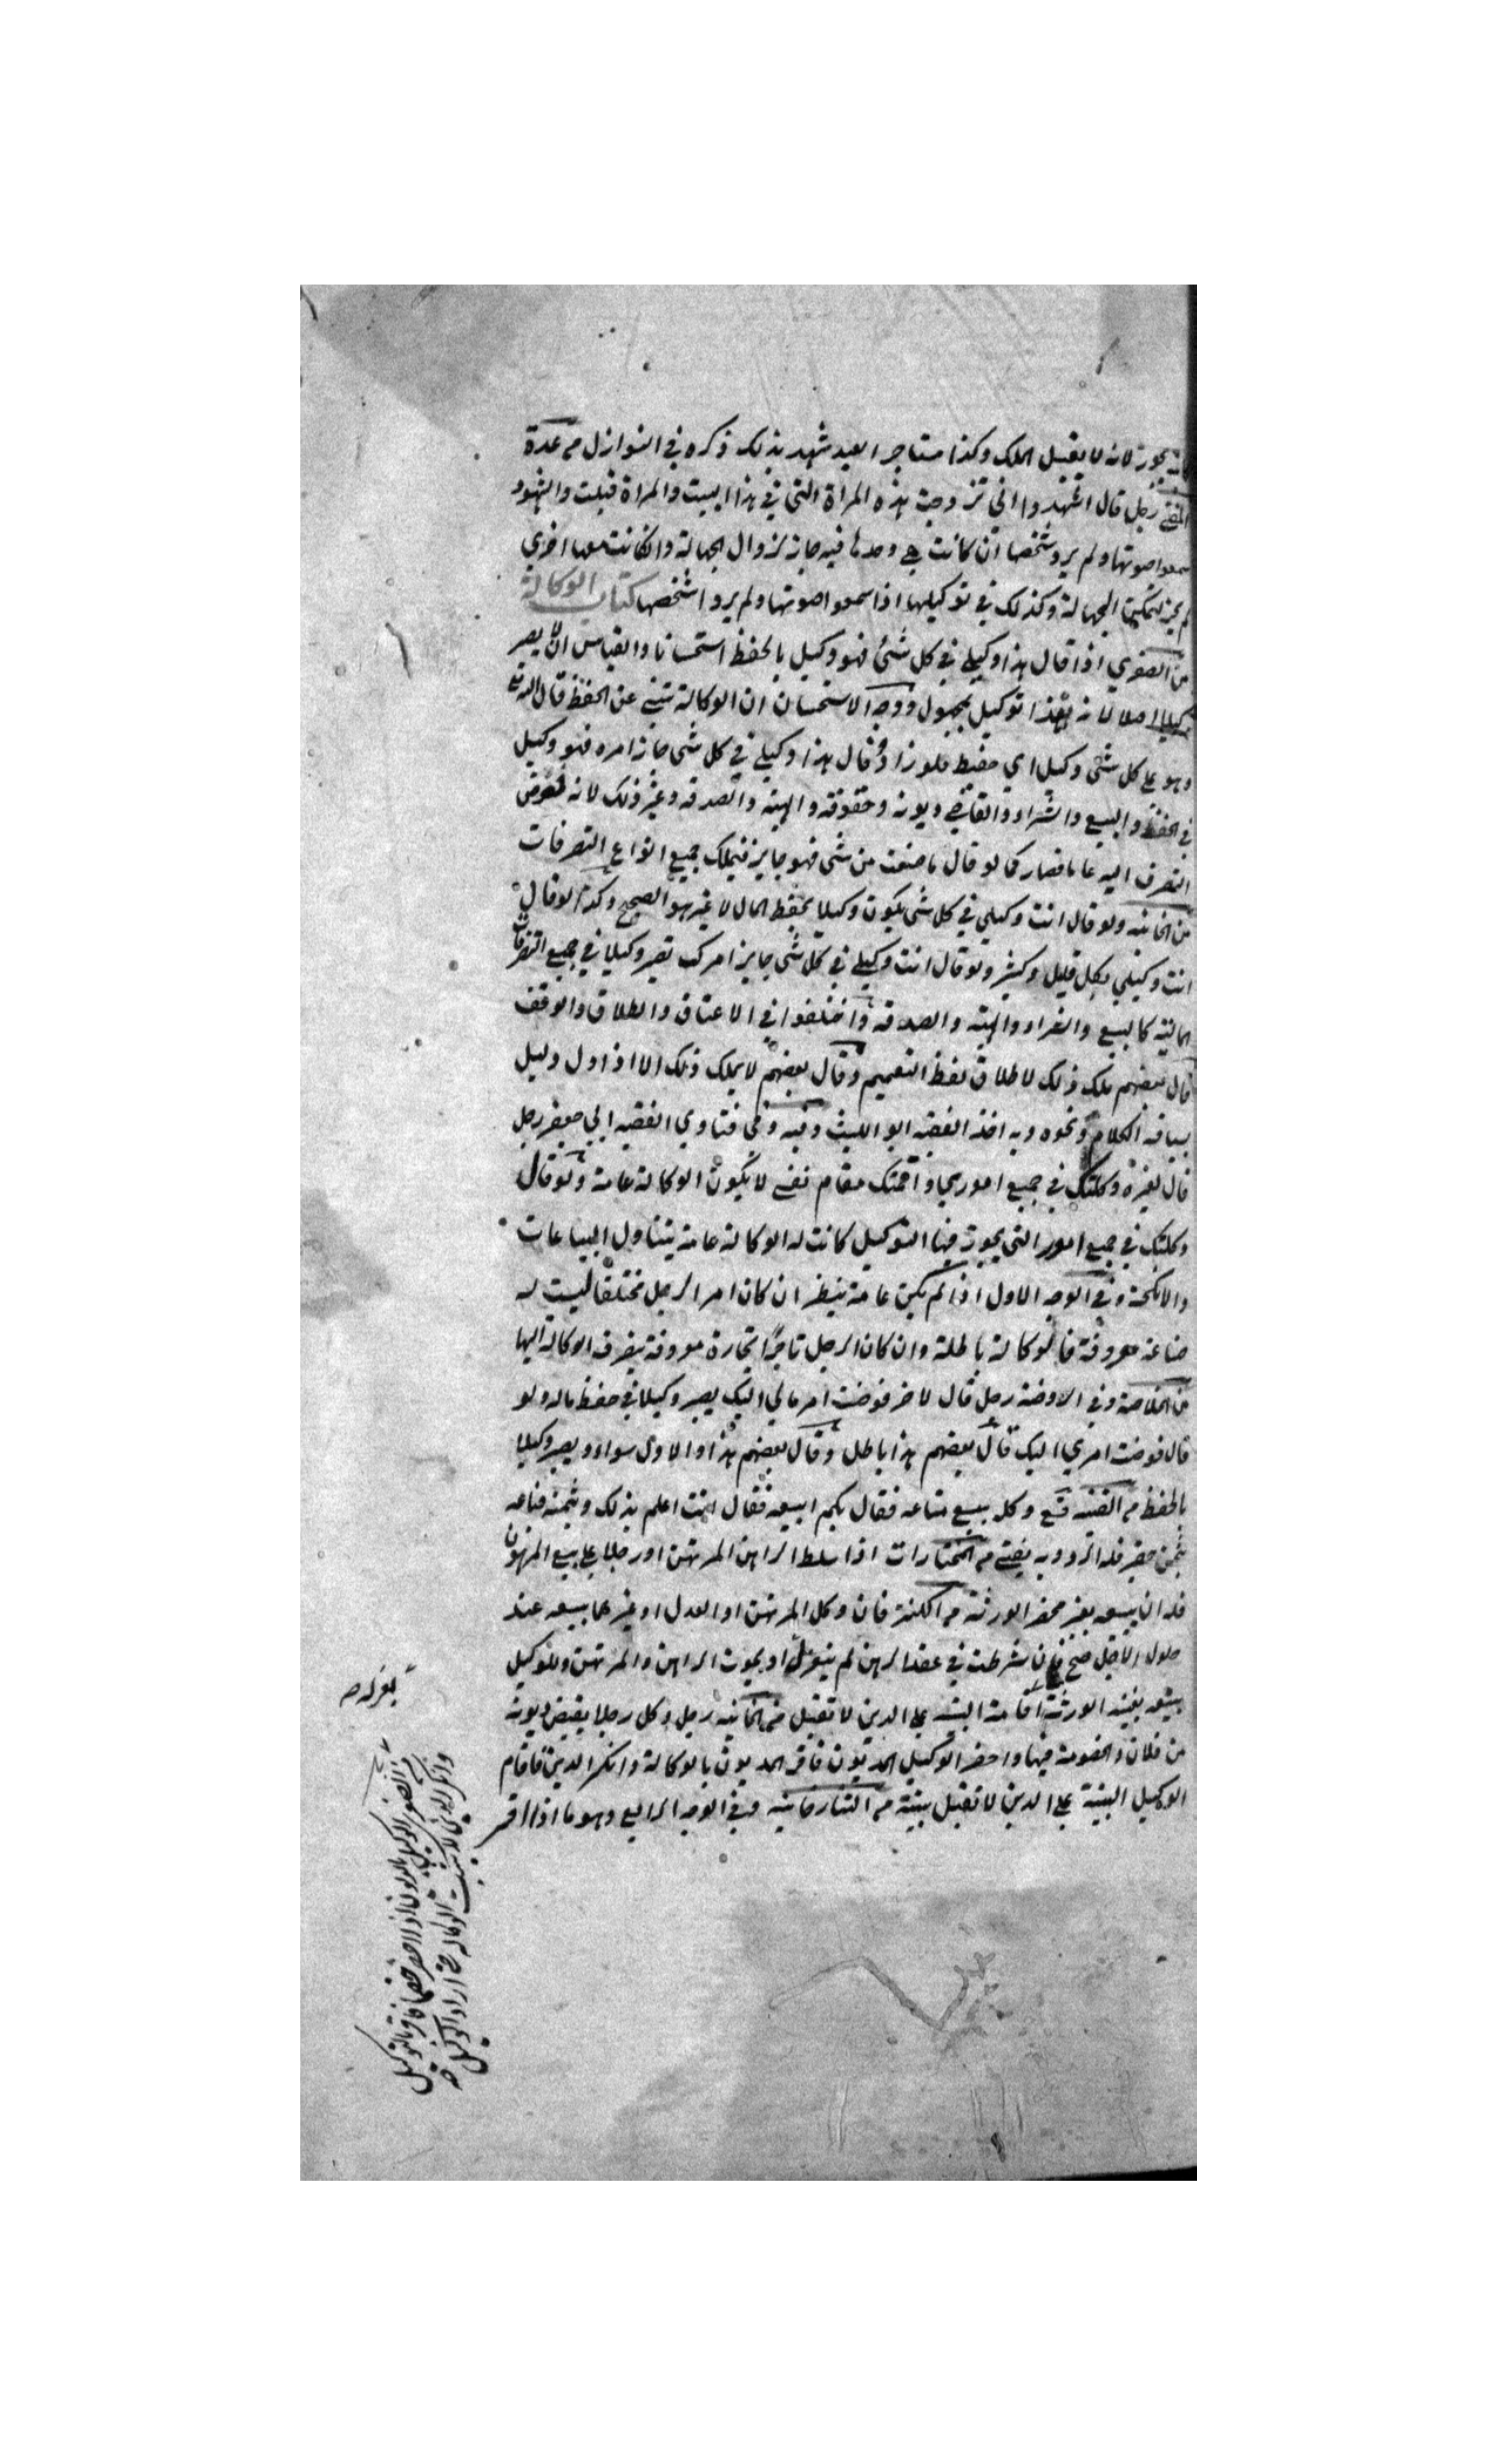 يجوز لانه لا يقبل الملك وكذا مستاجر العبد شهد بذلك ذكره في النوازل من عدة
المفتي رجل قال اشهدوا اني تزوجت هذه المراة التي في هذا البيت والمراة قبلت والشهود
سمعوا صوتها ولم يروا شخصها ان كانت هي وحدها فيه جاز لزوال الجهالة وان كانت معها اخري
لم يجز لتمكن الجهالة وكذلك في توكيلها اذا سمعوا صوتها ولم يروا شخصها كتاب الوكالة
من الصغري اذا قال هذا وكيلي في كل شئ فهو وكيل بالحفظ استحسانا والقياس ان لا يصير
وكيلا اصلا لانه هذا توكيل بمجهول ووجه الاستحسان ان الوكالة تنبي عن الحفظ قال الله تع
وهو على كل شئ وكيل اي حفيظ فلو زاد وقال هذا وكيلي في كل شي جاز امره فهو وكيل
في الحفظ والبيع والشراء والتقاضي ديونه وحقوقه والهبة والصدقة وغير ذلك لانه فوض
التصرف اليه عاما فصار كما لو قال ما صنعت من شي فهو جايز فيملك جميع انواع التصرفات
من الخانيه ولو قال انت وكيلي في كل شي يكون وكيلا بحفظ المال لا غير هو الصحيح وكذا لو قال
انت وكيلي بكل قليل وكثير ولو قال انت وكيلي في كل شي جايز امرك تصير وكيلا في جميع التصرفات
المالية كالبيع والشراء والهبة والصدقة واختلفوا في الاعتاق والطلاق والوقف
قال بعضهم يملك ذلك لاطلاق لفظ التعميم وقال بعضهم لا يملك ذلك الا اذا دل دليل
سياقة الكلام ونحوه وبه اخذ الفقيه ابو الليث وفيه وفي فتاوي الفقيه ابي جعفر رجل
قال لغيره وكلتك في جميع اموري واقمتك مقام نفسي لا يكون الوكالة عامة ولو قال
وكلتك في جميع امور التي يجوز فيها التوكيل كانت له الوكالة عامة يتناول البياعات
والانكحة وفي الوجه الاول اذا لم يكن عامة ينظر ان كان امر الرجل مختلفا ليست له
صناعة معروفة فالوكالة باطلة وان كان الرجل تاجرا تجارة معروفة يصرف الوكالة اليها
من الخلاصة وفي الروضة رجل قال لاخر فوضت امر مالي اليك يصير وكيلا في حفظ ماله ولو
قال فوضت امري اليك قال بعضهم هذا باطل وقال بعضهم هذا والاول سواء ويصير وكيلا
بالحفظ من القنية وكله ببيع متاعه فقال بكم ابيعه فقال انت اعلم بذلك وبثمنه فباعه
بثمن حقير فله الرد وبه يفتى من المختارات اذا سلط الراهن المرتهن او رجلا على بيع المرهون
فله ان يبيعه بغير محضر الورثة من الكنز فان وكل المرتهن او العدل او غيرهما ببيعه عند
حلول الاجل صح فان شرطت في عقد الرهن لم ينعزل او بموت الراهن والمرتهن وللوكيل
بيعه بغيبة الورثة اقامة البينة على الدين لا تقبل من الخانيه رجل وكل رجلا بقبض ديونه
من فلان والخصومة فيها واحضر الوكيل المديون فاقر المديون بالوكالة وانكر الدين فاقام
الوكيل البينة على الدين لا تقبل بينته من التتارخانيه وفي الوجه الرابع وهو ما اذا اقر
بعزله ص